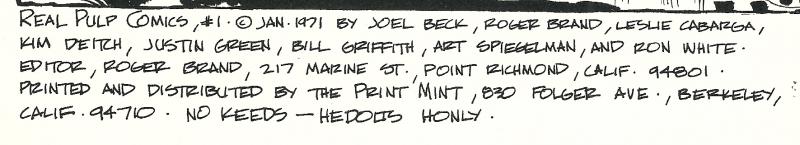 REAL PULP COMICS, #1. © JAN. 1971 BY JOEL BECK, ROGER BRAND, LESLIE CABARGA,
KIM DEITCH, JUSTIN GREEN, BILL GRIFFITH, ART SPIEGELMAN, AND RON WHITE.
EDITOR, ROGER BRAND, 217 MARINE ST., POINT RICHMOND, CALIF. 94801.
PRINTED AND DISTRIBUTED BY THE PRINT MINT, 830 FOLGER AVE., BERKELEY,
CALIF. 94710. NO KEEDS — HEDOLTS HONLY.